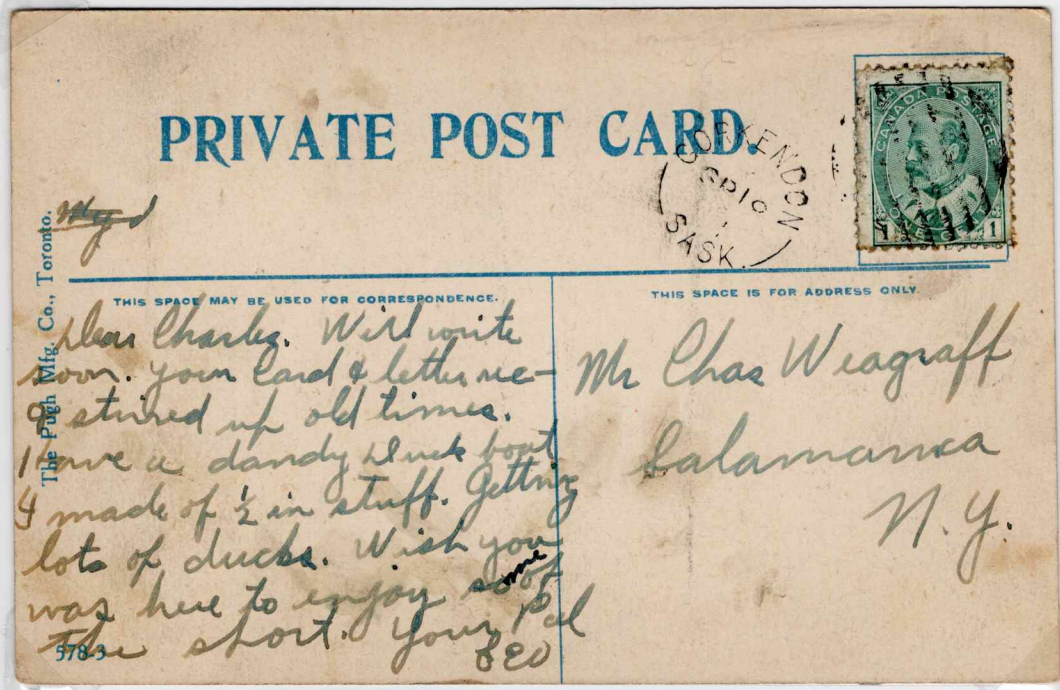 PRIVATE POST CARD.
CANADA POSTAGE
ONE CENT
1 1
SP 19
SASK.
The Pugh Mfg. Co., Toronto.
THIS SPACE MAY BE USED FOR CORRESPONDENCE.
THIS SPACE IS FOR ADDRESS ONLY.
Dear Charles. Will write
soon. Your Card & letter rec-
& stirred up old times.
I have a dandy Duck boat
made of ½ in stuff. Getting
lots of ducks. Wish you
was here to enjoy some of
the short. Your Pal
Mr Chas Weagraff
Salamanca
N.Y.
578-3